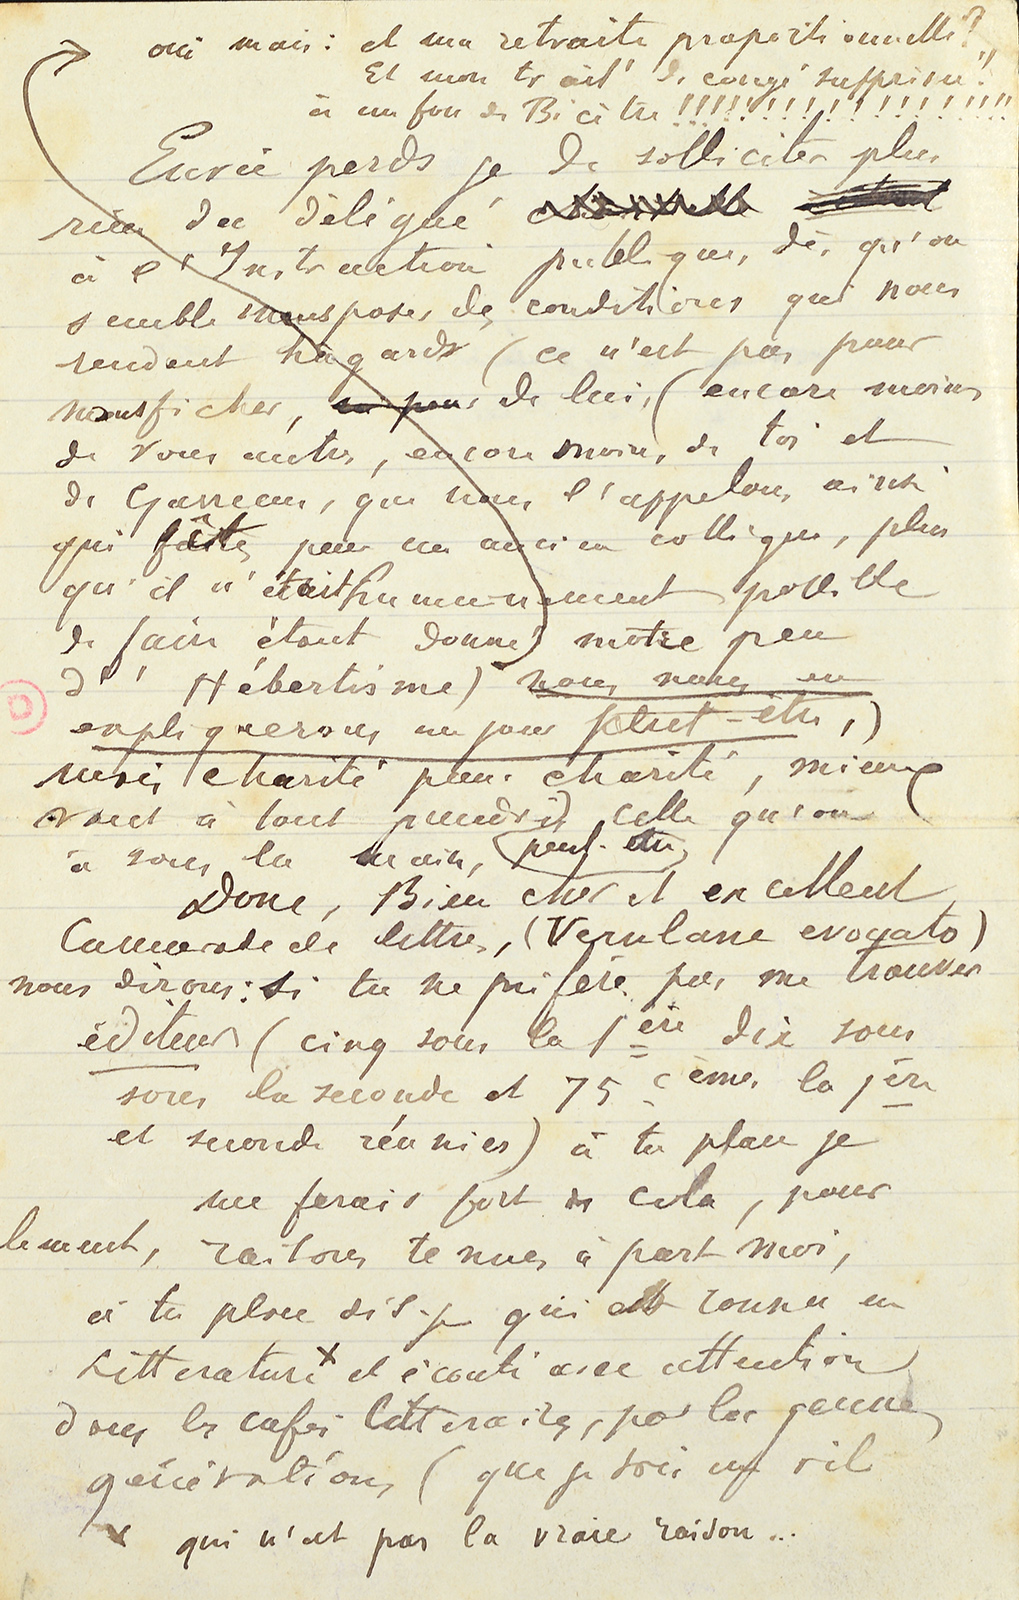 oui mais: et ma retraite proportionnelle?
Et mon trait' de congé supprimé!!
à un fou de Bicêtre !!!!!!!!!!!!!!!!!!
Envie perds je de solliciter plus
rien du délégué
à l'Instruction publique, dès qu'on
semble nous poser des conditions qui nous
rendent hagards (ce n'est pas pour
nous ficher, de lui, (encore moins
de vous autres, encore moins de toi et
de Garreau, que nous l'appelons ainsi
qui faîtes pour un ancien collègue, plus
qu'il n'était humainement possible
de faire étant donné notre peu
d' Hébertisme) nous nous en
expliquerons un jour peut-être,)
mais charité pour charité, mieux
vaut à tout prendre celle qu'on
a sous la main, (peut-être)
Donc, Bien cher et excellent
Camarade de lettres, (Verulane evocato)
nous dirons: si tu ne préfère pas me trouver
éditeur (cinq sous la 1ère dix sous
sous la seconde et 75 cèmes la 1ère
et seconde réunies) à ta place je
me ferais fort de cela, pour
lement, raisons tenues à part moi,
à ta place dis-je qui est connu en
Litterature x et écouté avec attention
dans les cafés litteraires, par les jeunes
générations (que je sois un vil
x qui n'est pas la vraie raison...
D